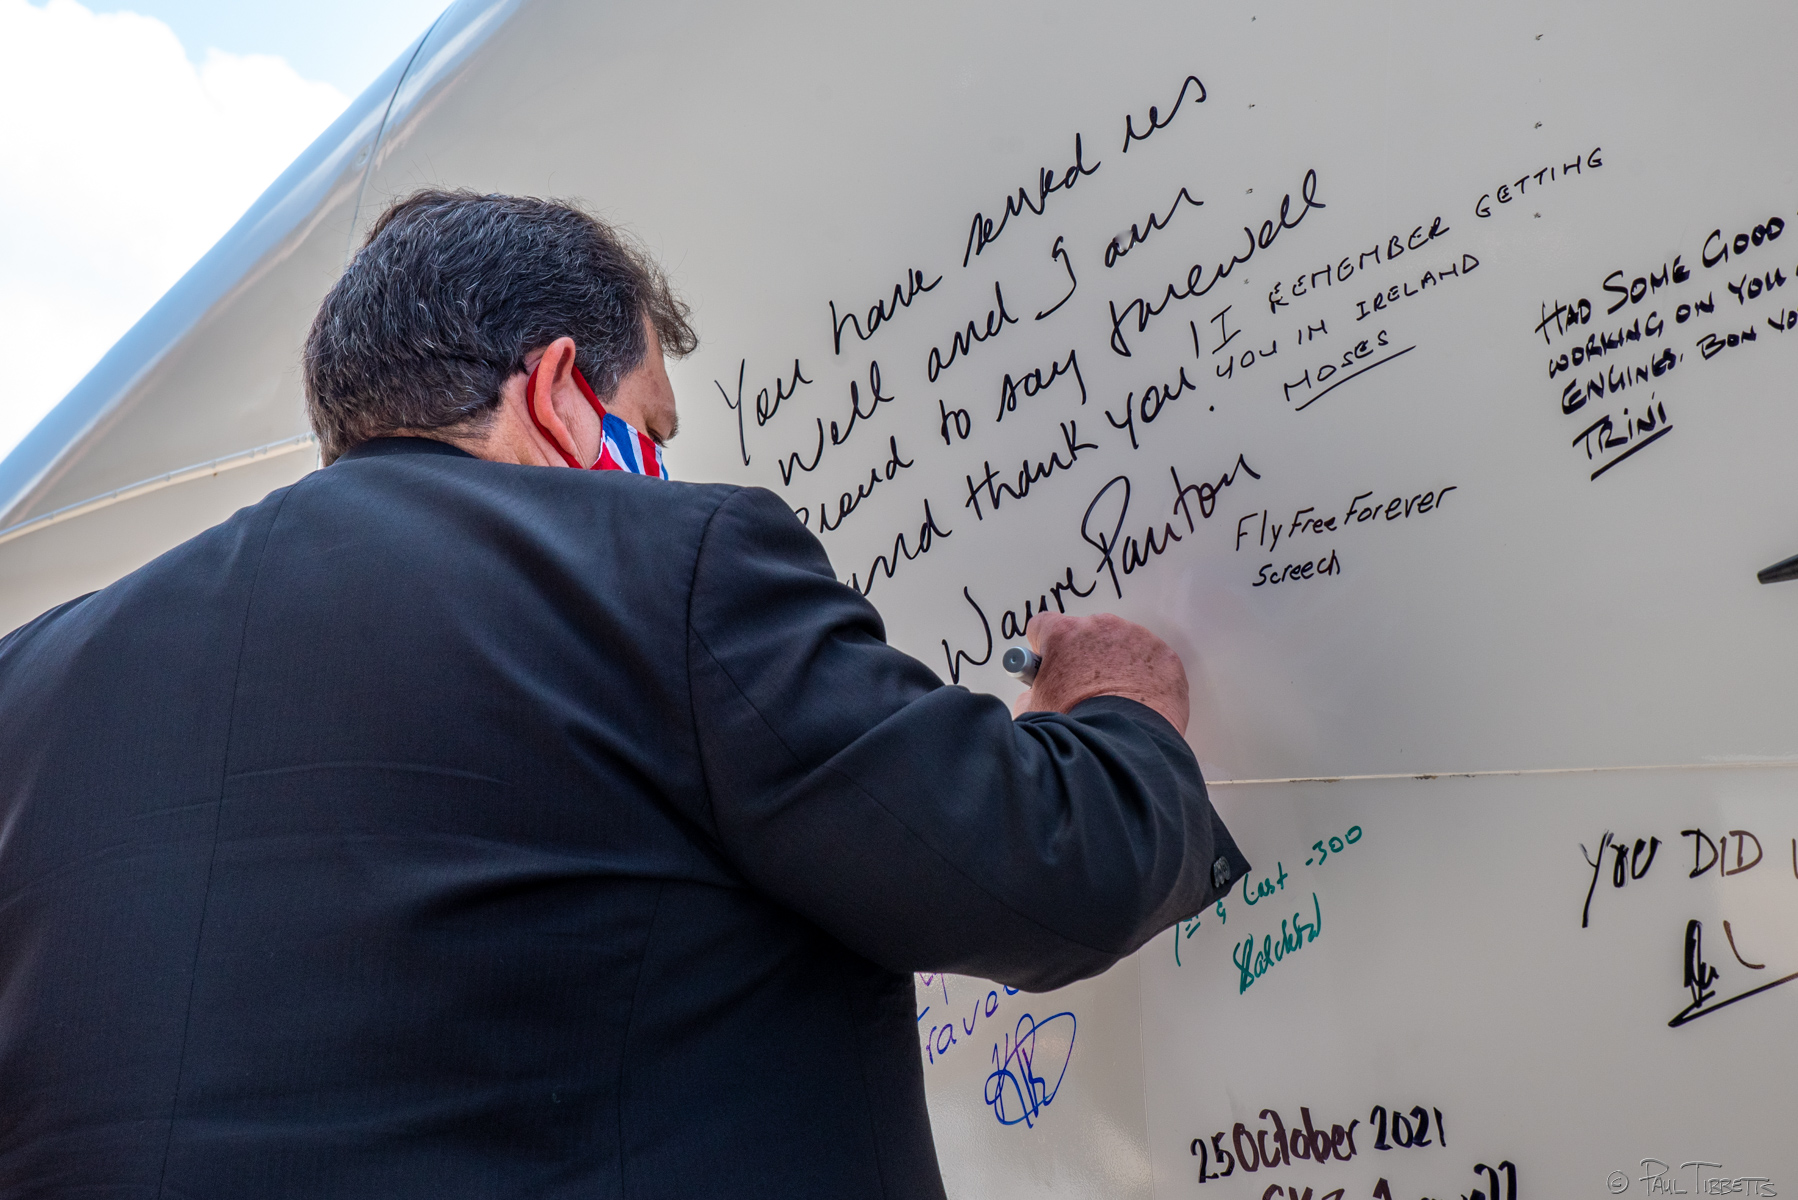 You have served us
well and I am
proud to say farewell
and thank you!
Wayne Panton
I REMEMBER GETTING
YOU IN IRELAND
MOSES
HAD SOME GOOD
WORKING ON YOU
ENGINES. BON VO
TRINI
Fly Free Forever
Screech
1st & Last -300
YOU DID
25 October 2021
© PAUL TIBBETTS